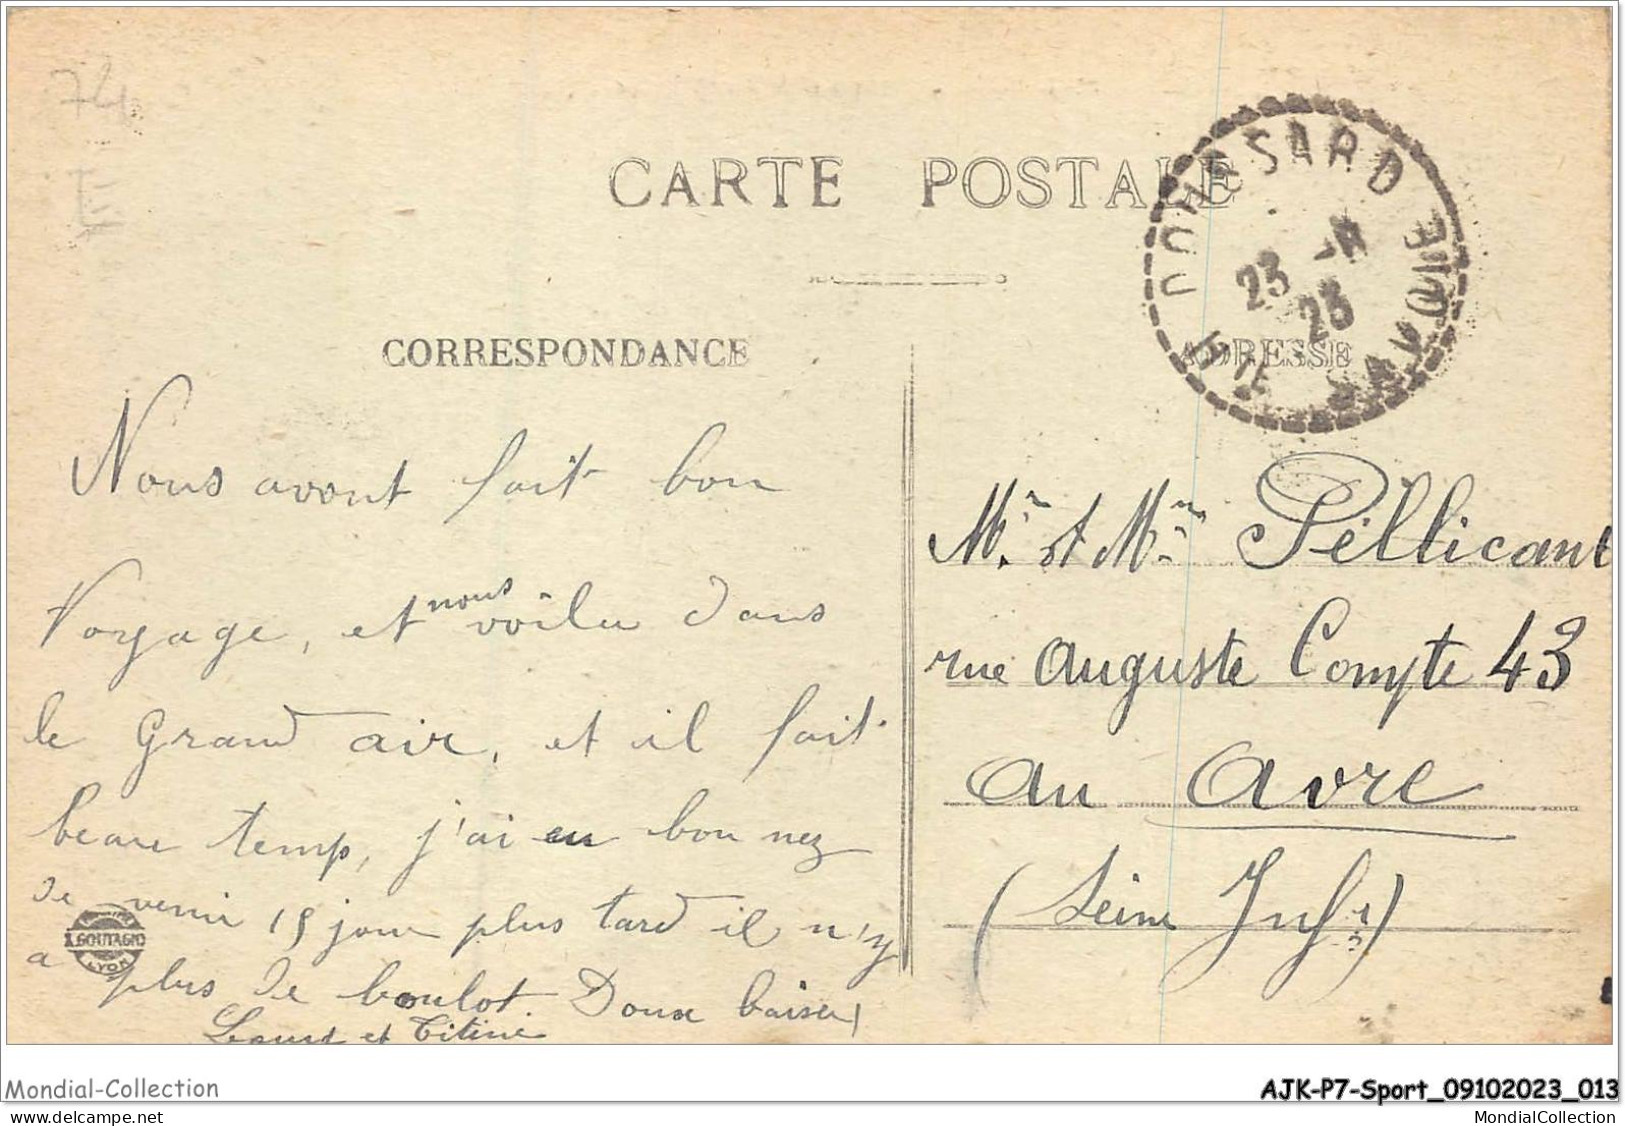 74
E
CARTE POSTALE
COUSSARD
23 -11
23
HTE SAVOIE
CORRESPONDANCE
ADRESSE
Nous avont fait bon
Voyage, et nous voila dans
le Grand air, et il fait
beau temp, j'ai eu bon nez
de venir 15 jour plus tard il n'y
a plus de boulot. Doux baiser
et Titine
Mr et Mme Péllicant
rue Auguste Compte 43
au avre
(Seine Infre)
GOUTAGNY
LYON
Mondial-Collection
AJK-P7-Sport_09102023_013
MondialCollection.com
MondialCollection